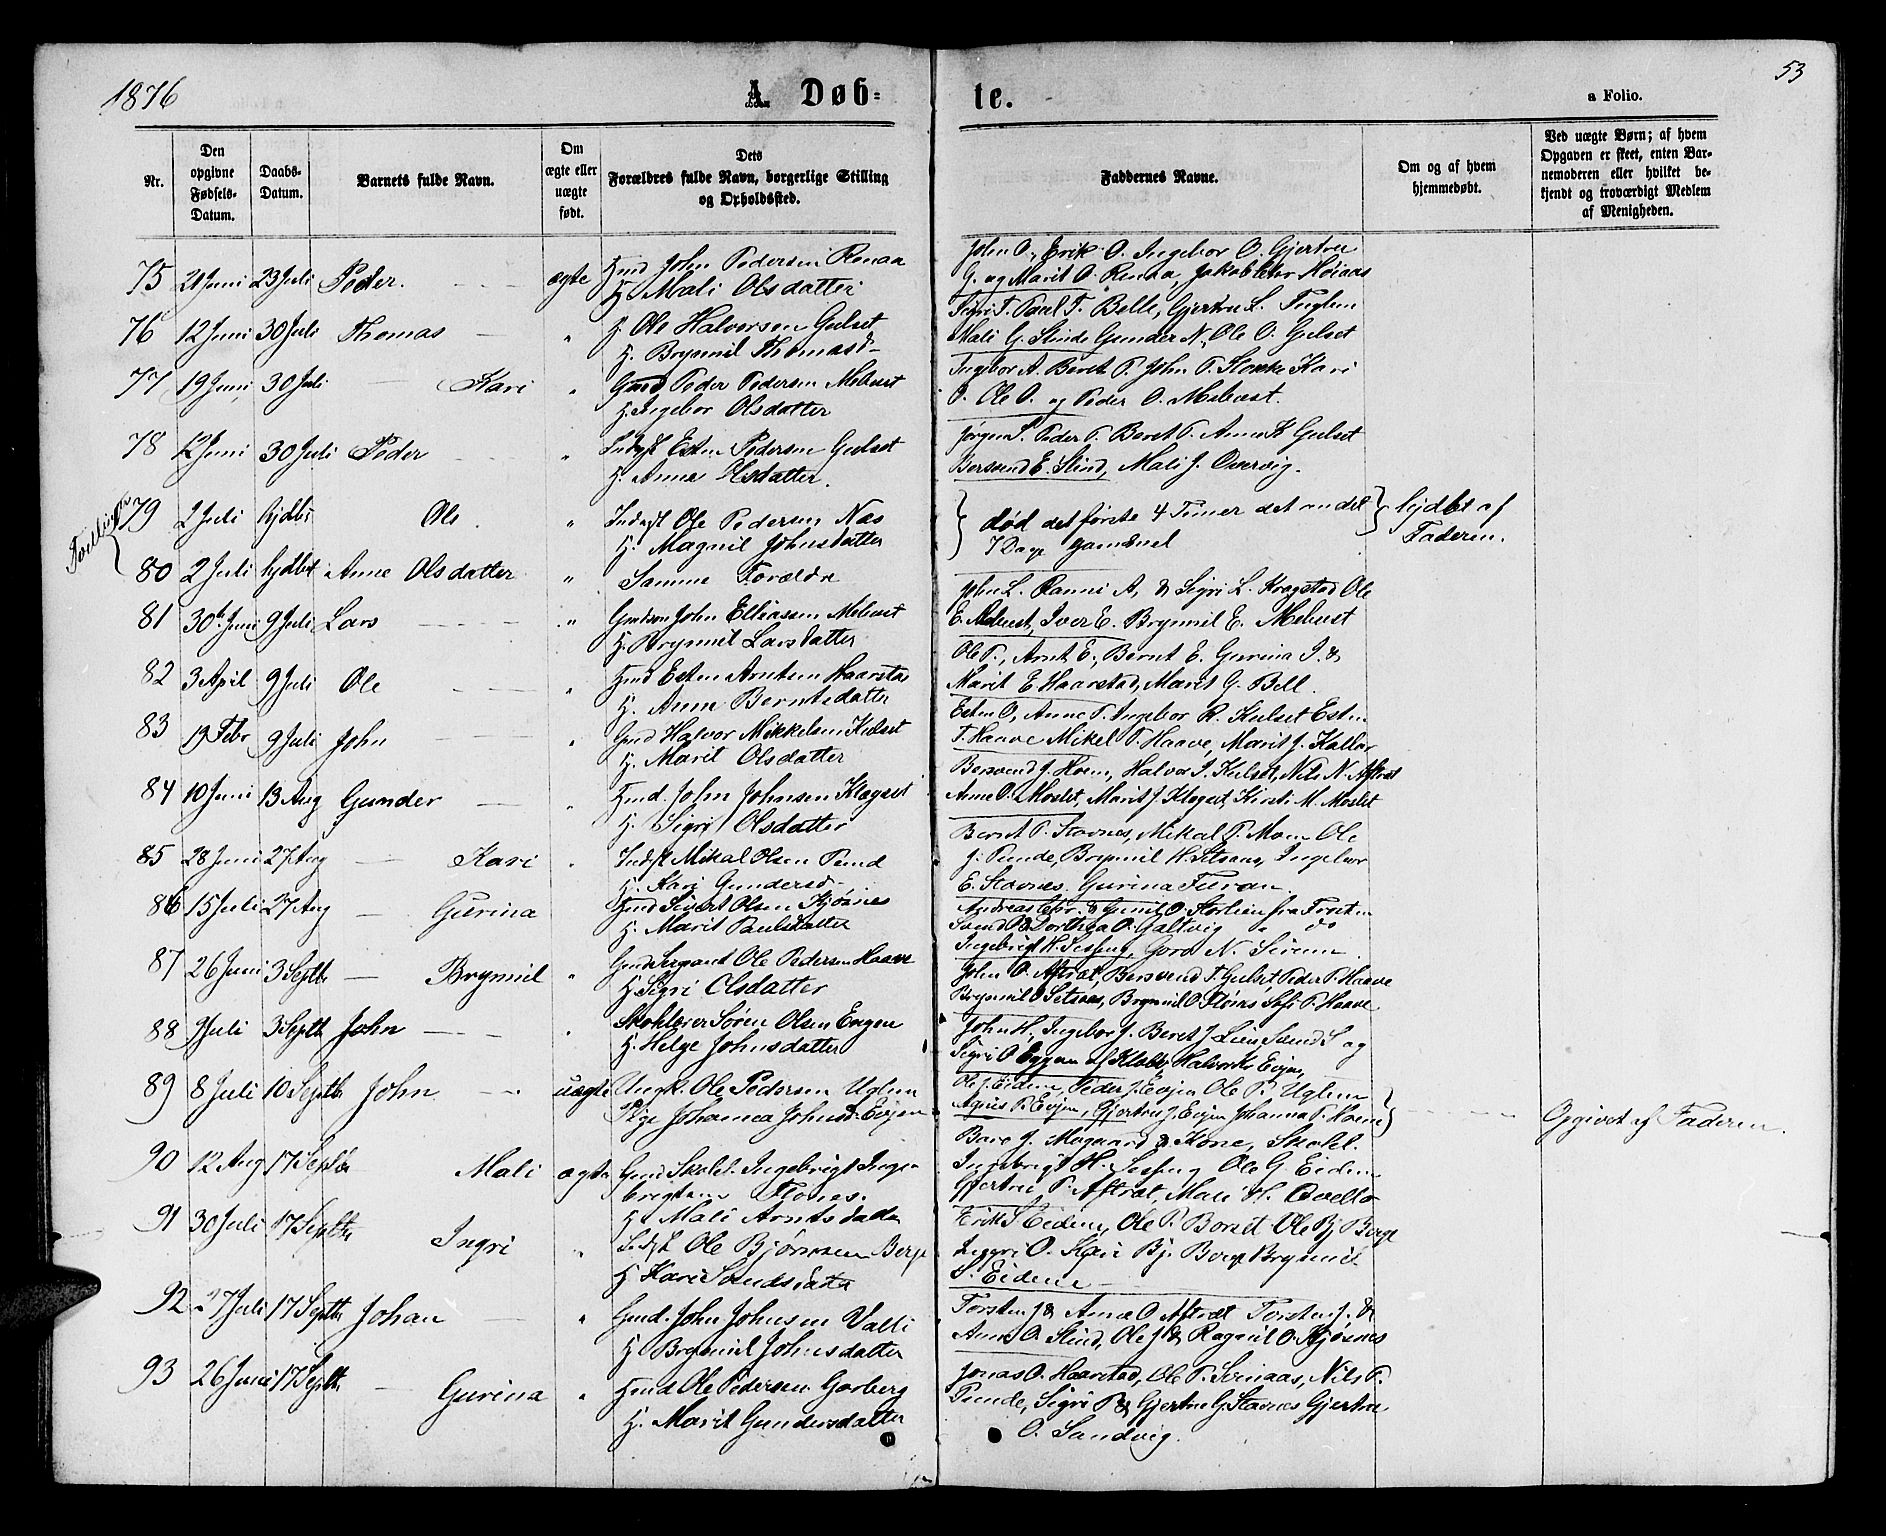 1876
A. Døb=
te.
a Folio.
53
Nr.
Den opgivne Fødsels-Datum.
Daabs-Datum.
Barnets fulde Navn.
Om ægte eller uægte født.
Dets Forældres fulde Navn, borgerlige Stilling og Opholdssted.
Faddernes Navne.
Om og af hvem hjemmedøbt.
Ved uægte Børn; af hvem Opgaven er skeet, enten Barnemoderen eller hvilket bekjendt og troværdigt Medlem af Menigheden.
75 21 Juni 23 Juli Peder. ægte John Pedersen Renaa
H. Mali Olsdatter
John O., Erik O. Ingebor O. Gjertru
G. og Marit O. Renaa, Jakob
76 12 Juni 30 Juli Thomas " Ole Halvorsen Gulset
H. Brynnil Thomasd
Sigri T. Paul T. Belle, Gjertru L. Fuglem
Mali G. Slinde Gunder N., Ole O. Gulset
77 19 Juni 30 Juli Kari " Gmd Peder Pedersen Mebust
H. Ingebor Olsdatter
Ingebor A. Beret P. John P. Stokke Kari
P. Ole O. og Peder O. Mebust.
78 12 Juni 30 Juli Peder " Indst Esten Pedersen Gulset
H. Anne Olsdatter.
Jørgen S. Peder P. Beret P. Anne K Gulset
Bersvend E. Slind, Mali J. Overvig.
79 2 Juli hjdbt Ole " Indgst Ole Pedersen Næs
H. Magnil Johnsdatter
død det første 4 Timer det andet
7 Dage gammel
hjdbt af
Faderen.
80 2 Juli hjdbt Anne Olsdatter " Samme Forældre
81 30te Juni 9 Juli Lars " John Elliassen Mebust
H. Brynnil Larsdatter
John L. Rønni A, & Sigri L. Kragstad Ole
E. Mebust, Iver E. Brynnil E. Mebust
82 3 April 9 Juli Ole " Esten Arntsen Haarstad
H. Anne Berntsdatter
Ole P., Arnt E., Bernt E. Gurina I. &
Marit E Haarstad, Marit G. Bell.
83 19 Febr 9 Juli John " Gmd Halvor Mikkelsen Kulset
H. Marit Olsdatter
Esten O, Anne P. Ingebor R. Kulset Esten
T. Haave Mikel T. Haave, Marit J. Kallar
84 10 Juni 13 Aug Gunder " John Johnsen Klegset
H. Sigri Olsdatter
Bersvend J. Hoem, Halvor I. Kulset, Nils N. Aftret
Anne O. Moslet, Marit J. Klegset, Kirsti M. Moslet
85 28 Juni 27 Aug Kari " Indst Mikal Olsen Pund
H. Kari Gundersd
Bernt P. Stavnes, Mikal P. Moen Ole
J. Punde, Brynnil H. Setsaas, Ingebor
E. Stavnes. Gurina Furan.
86 15 Juli 27 Aug Gurina Sivert Olsen Kjøsnes
H. Marit Paulsdatter
Andreas Chr. & Gunil O. Stortien fra
Svend & Dorthea O. Galtvig " do
Ingebrigt H. Sesseng, Goro N. Sirum
87 26 Juni 3 Septb Brynnil " Sergeant Ole Pedersen Haave
H. Sigri Olsdatter
John O. Aftrat, Bersvend T. Gulset, Peder P. Haave
Brynnil O Setsaas, Brynnil O. Flønes Sofi P. Haave
88 9 Juli 3 Septb John " Skolelærer Søren Olsen Engen
H. Helge Johnsdatter
John H, Ingebor J. Beret J Lien Svend S og
Sigri O Eggen af Klæbo, Halvor Evjen,
89 8 Juli 10 Septb John uægte Ungk. Ole Pedersen Uglem
Pige Johanna Johnsd. Evjen
Ole J. Eidem, Peder J. Evjen Ole P. Uglem
P. Evjen, Gjertru J. Evjen Johanna P. Hoem
Opgivet af Faderen.
90 12 Aug 17 Septbr Mali ægte Gmd Skolel. Ingebrigt Inge
brigtsen Flønes.
H. Mali Arntsdatter
Baro J. Mogaard & Kone, Skolel.
Ingebrigt H. Sesseng Ole G. Eidem
Gjertru P. Aftrat, Mali H.
91 30 Juli 17 Septbr Ingri " Indst Ole Bjørnsen Berge
H Kari Svendsdatter
Erik S Eidem, Ole P. Borset Ole Bj Berge
Ingri O. Kari Bj. Berge Brynnil
S. Eidem
92 27 Juli 17 Septbr Johan " Gmd. John Johnsen Valli
H Brynnil Johnsdatter
Torsten J & Anne O Aftrat Torsten J. &
Anne O. Slind, Ole J & Ragnil O. Kjøsnes
93 26 Juni 17 Septbr Gurina " Ole Pedersen Garberg
H. Marit Gundersdatter
Jonas O. Haarstad, Ole P. Sveinaas, Nils P.
Punde, Sigri P & Gjertru G Stavnes Gjertru
O. Sandvig.